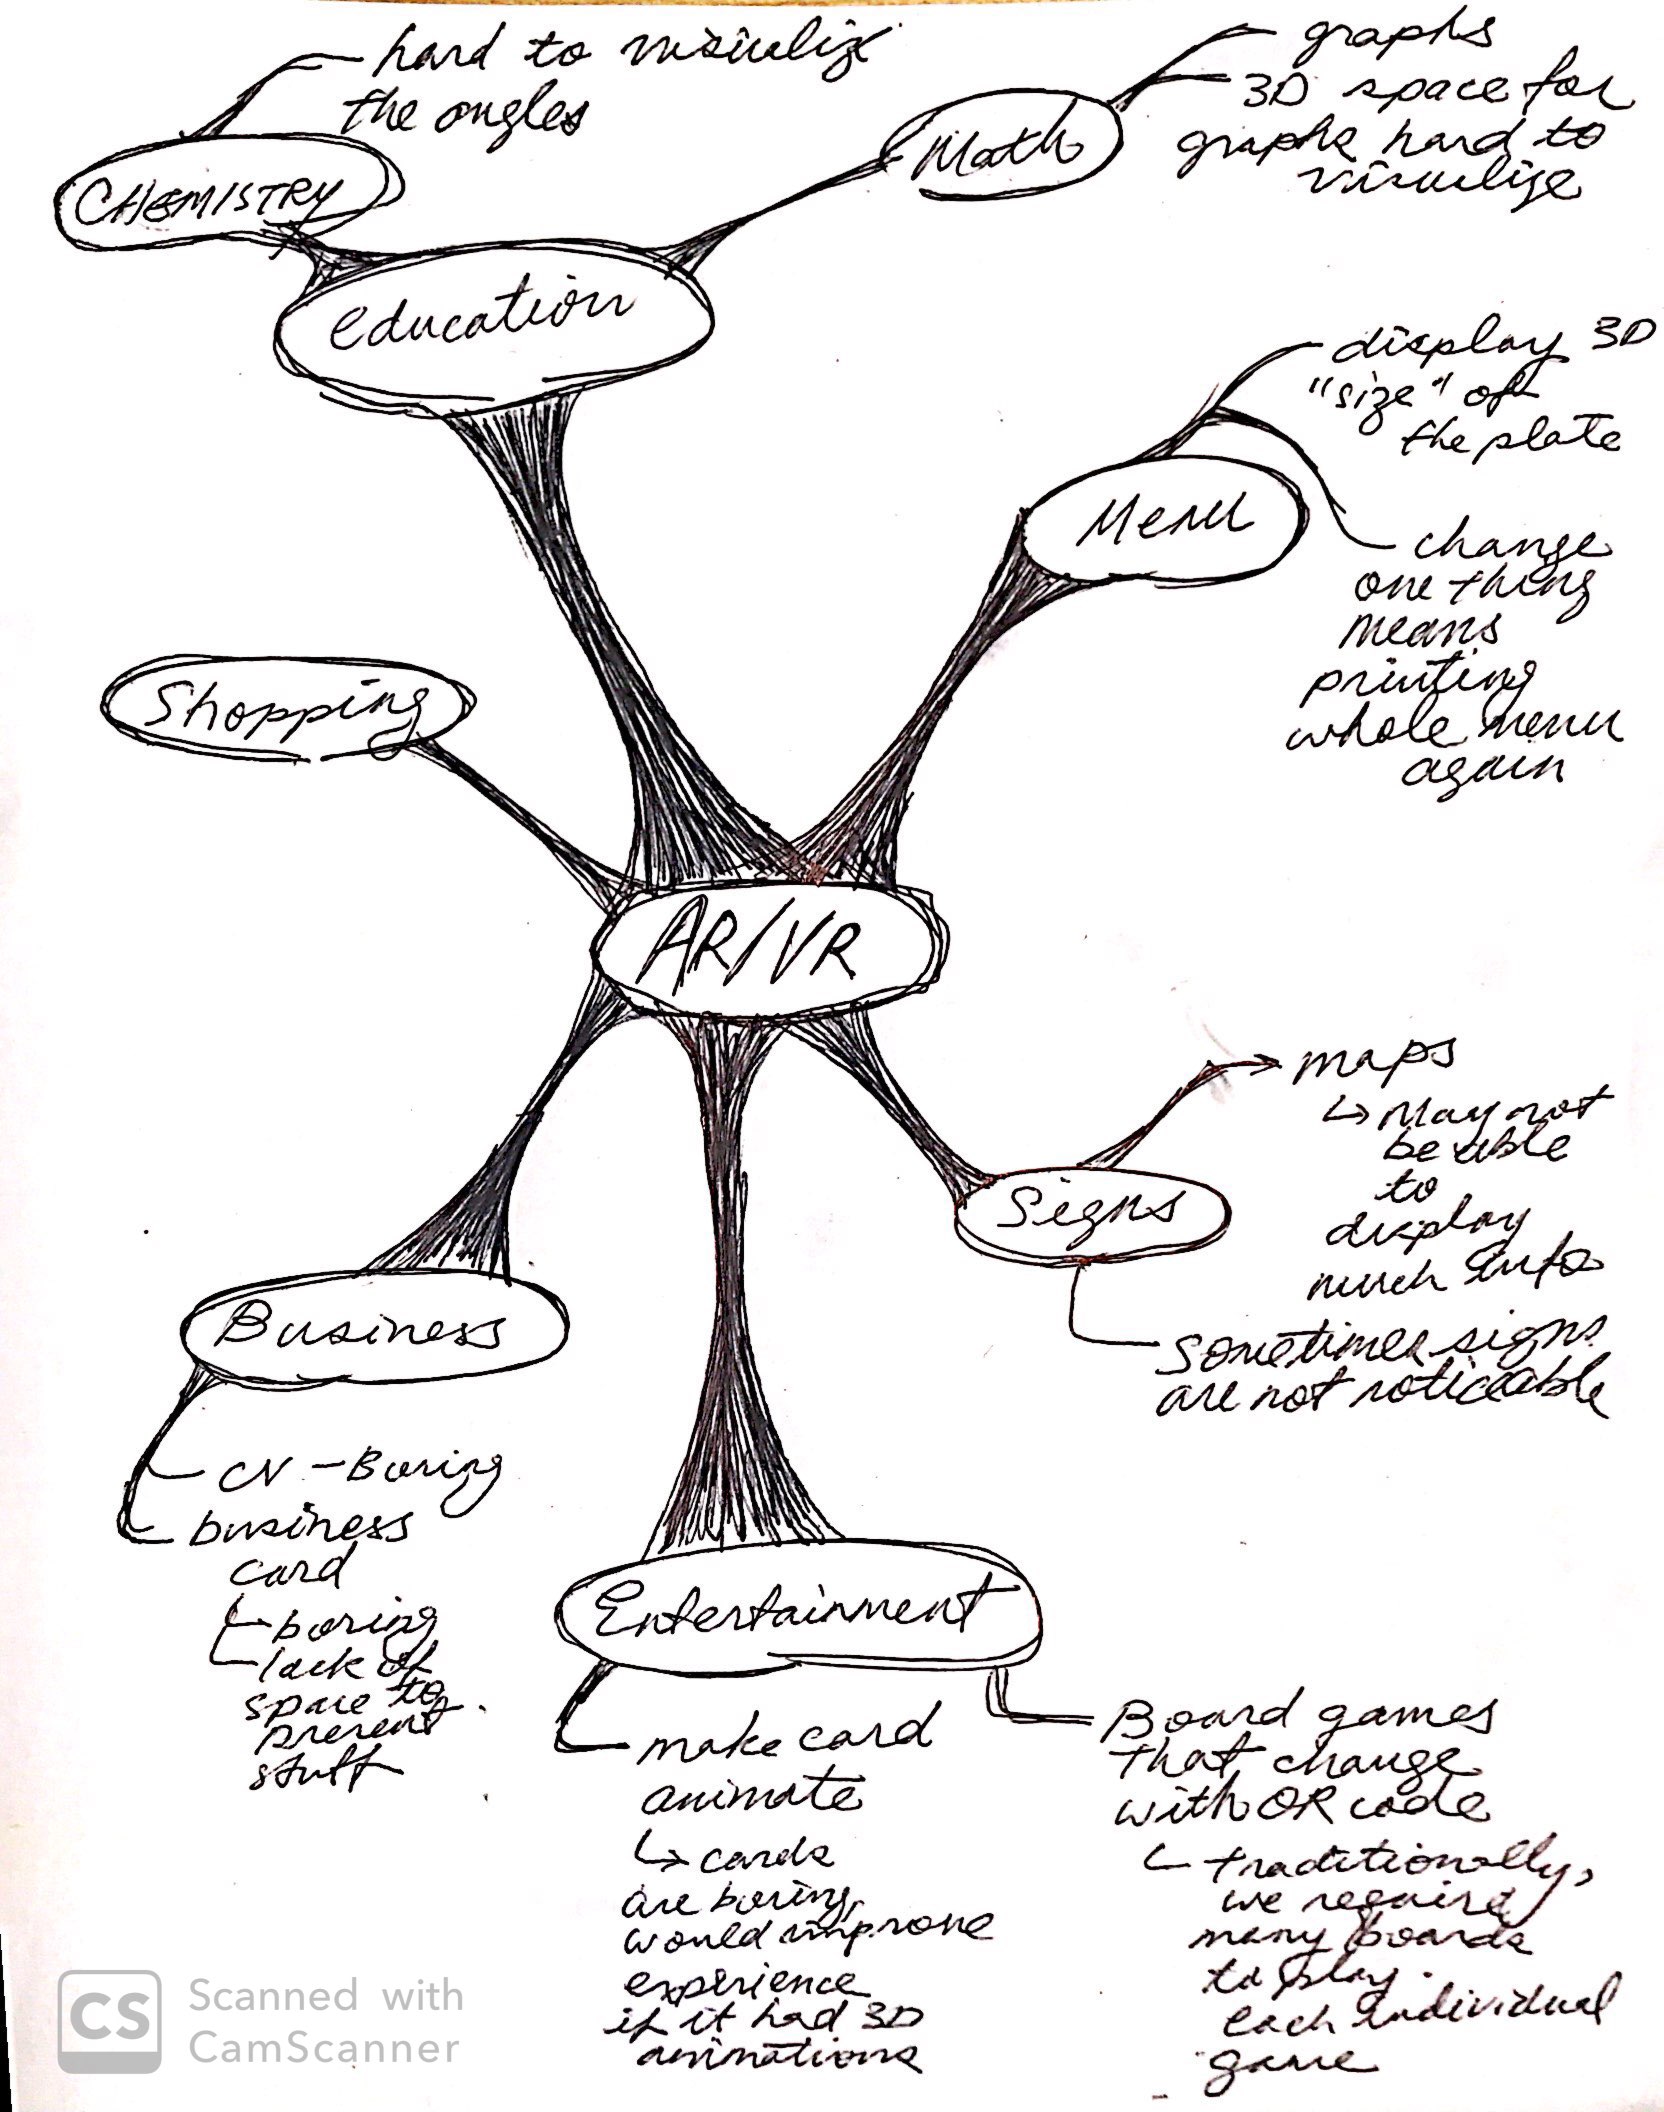 hard to visualize
the angles
CHEMISTRY
Math
graphs
3D space for
graphs hard to
visualize
Education
Menu
display 3D
"size" of
the plate
change
one thing
means
printing
whole menu
again
Shopping
AR/VR
Signs
maps
↳ May not
be able
to
display
much info
Sometimes signs
are not noticeable
Business
CV - Boring
business
card
boring
lack of
space to
present
stuff
Entertainment
make card
animate
↳ cards
are boring,
would improve
experience
if it had 3D
animations
Board games
that change
with QR code
traditionally,
we require
many boards
to play
each individual
game
CS
Scanned with
CamScanner